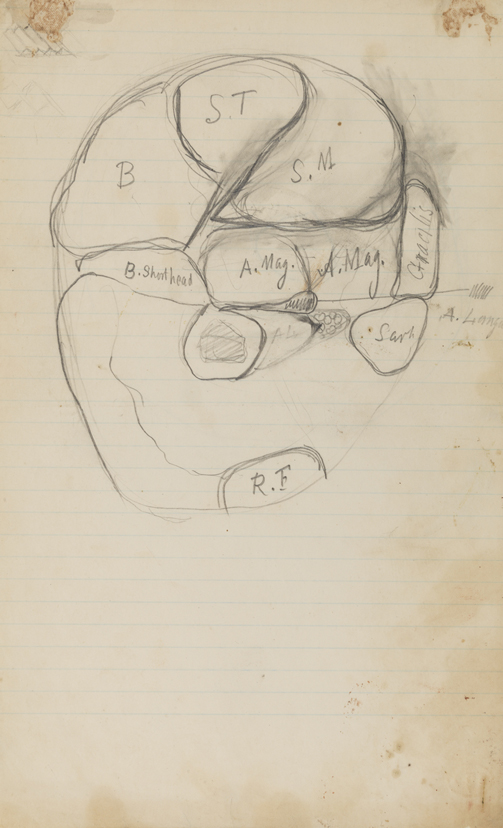 S.T
B
S.M
Gracilis
B. Shorthead
A. Mag.
A. Mag.
Sart
R.F